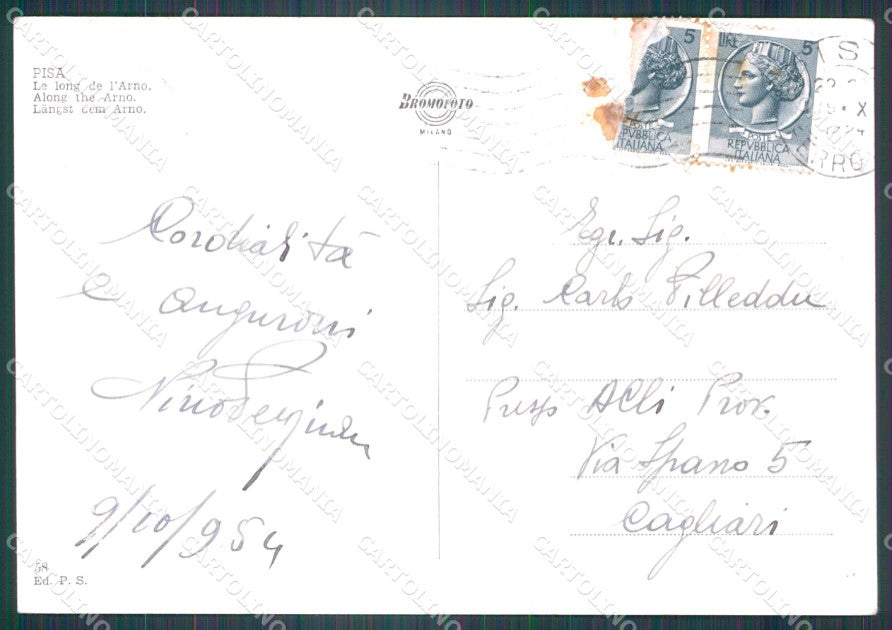 PISA
Le long de l'Arno.
Along the Arno.
Längst dem Arno.
BROMOFOTO
MILANO
5
LIRE 5
POSTE
REPVBBLICA
ITALIANA
POSTE
REPVBBLICA
ITALIANA
Cordialità
e auguroni
9/10/954
Egr. Sig.
Sig. Carlo Pilleddu
Presso ACLI Prov.
Via Spano 5
Cagliari
58
Ed. P. S.
CARTOLINOMANIA